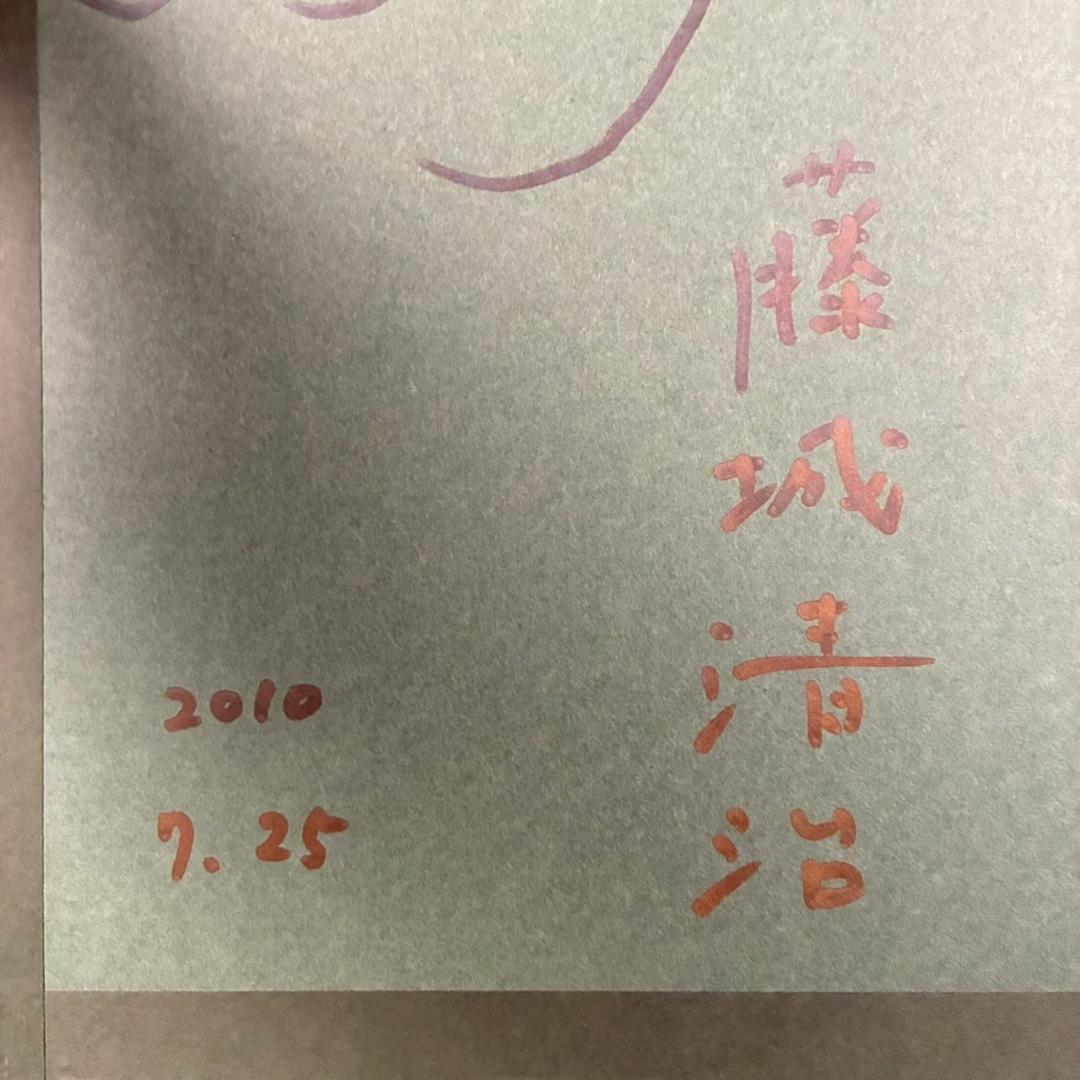 藤城清治
2010
7.25